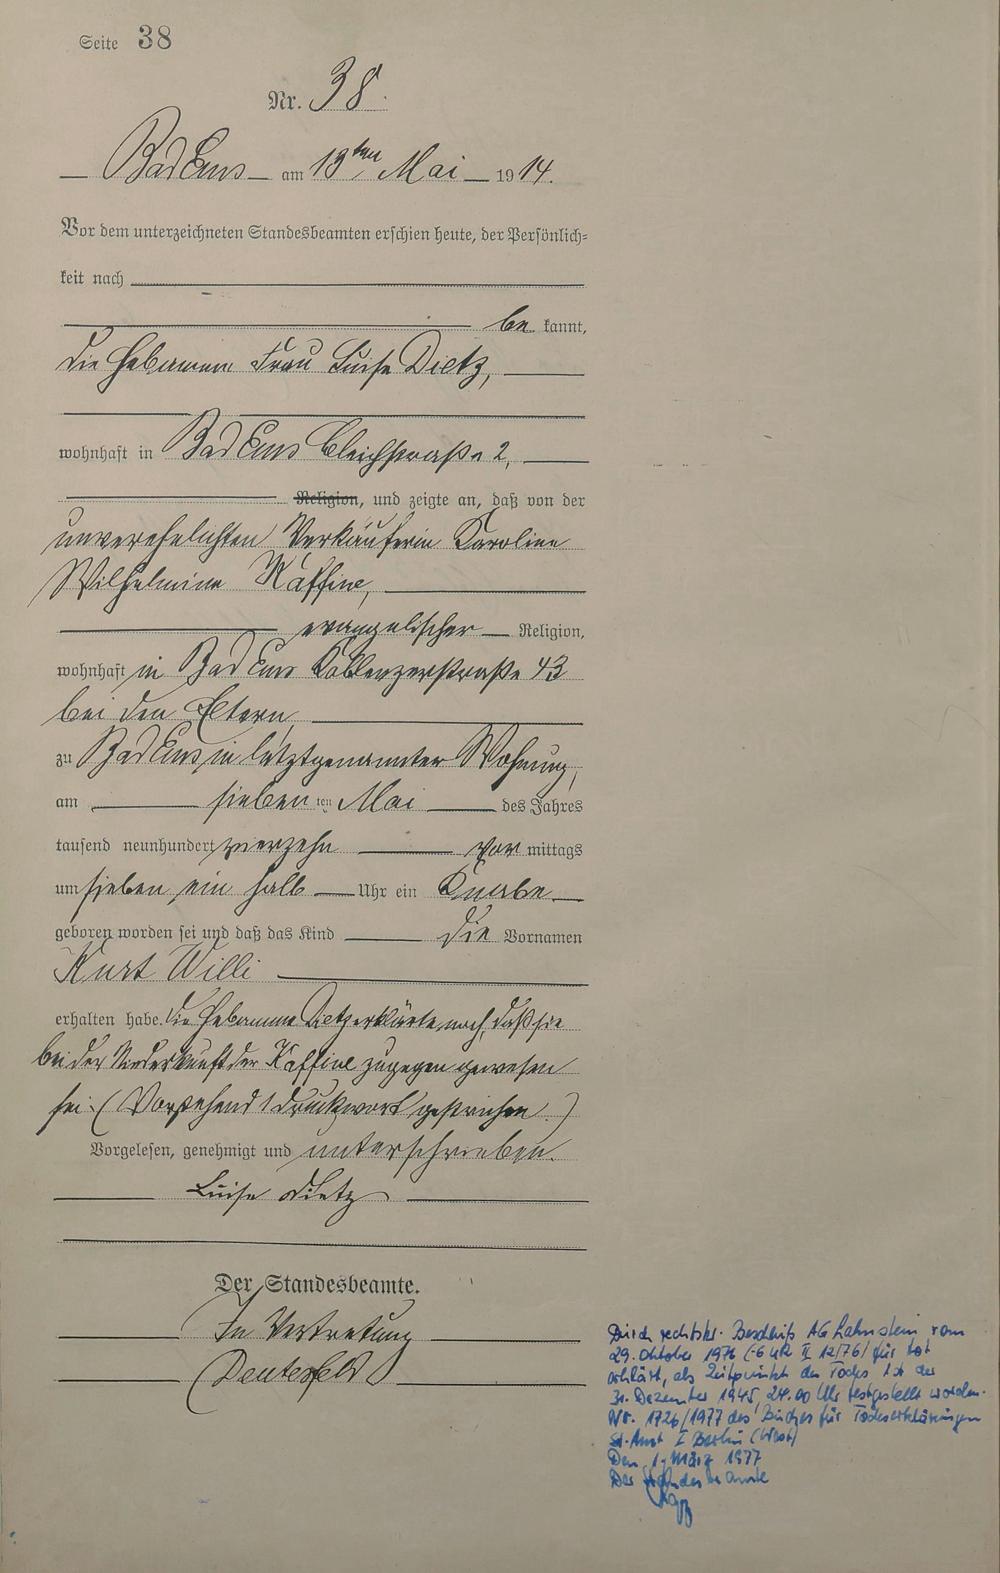 Seite 38
Nr. 38.
Bad Ems am 13ten Mai 1914.
Vor dem unterzeichneten Standesbeamten erschien heute, der Persönlich-
keit nach
be kannt,
die Hebamme Frau Luise Dietz,
wohnhaft in Bad Ems Bleichstraße 2,
Religion, und zeigte an, daß von der
unverehelichten Verkäuferin Karoline
Wilhelmine Kaffine,
evangelischer Religion,
wohnhaft in Bad Ems Coblenzerstraße 43
bei den Eltern
zu Bad Ems, in letztgenannter Wohnung,
am sieben ten Mai des Jahres
tausend neunhundert vierzehn vor mittags
um sieben ein halb Uhr ein Knabe
geboren worden sei und daß das Kind die Vornamen
Kurt Willi
erhalten habe. Die Hebamme Dietz erklärte noch, daß sie
bei der Niederkunft der Kaffine zugegen gewesen
sei. (Vorstehend 1 Druckwort gestrichen.)
Vorgelesen, genehmigt und unterschrieben.
Luise Dietz
Der Standesbeamte.
In Vertretung
Durch rechtskr. Beschluß AG Lahnstein vom
29. Oktober 1976 (-6 UR II 12/76) für tot
erklärt, als Zeitpunkt des Todes ist der
31. Dezember 1945, 24.00 Uhr festgestellt worden.
Nr. 1726/1977 des Buches für Todeserklärungen
St.Amt I Berlin (West)
Den 1. März 1977
Der Standesbeamte